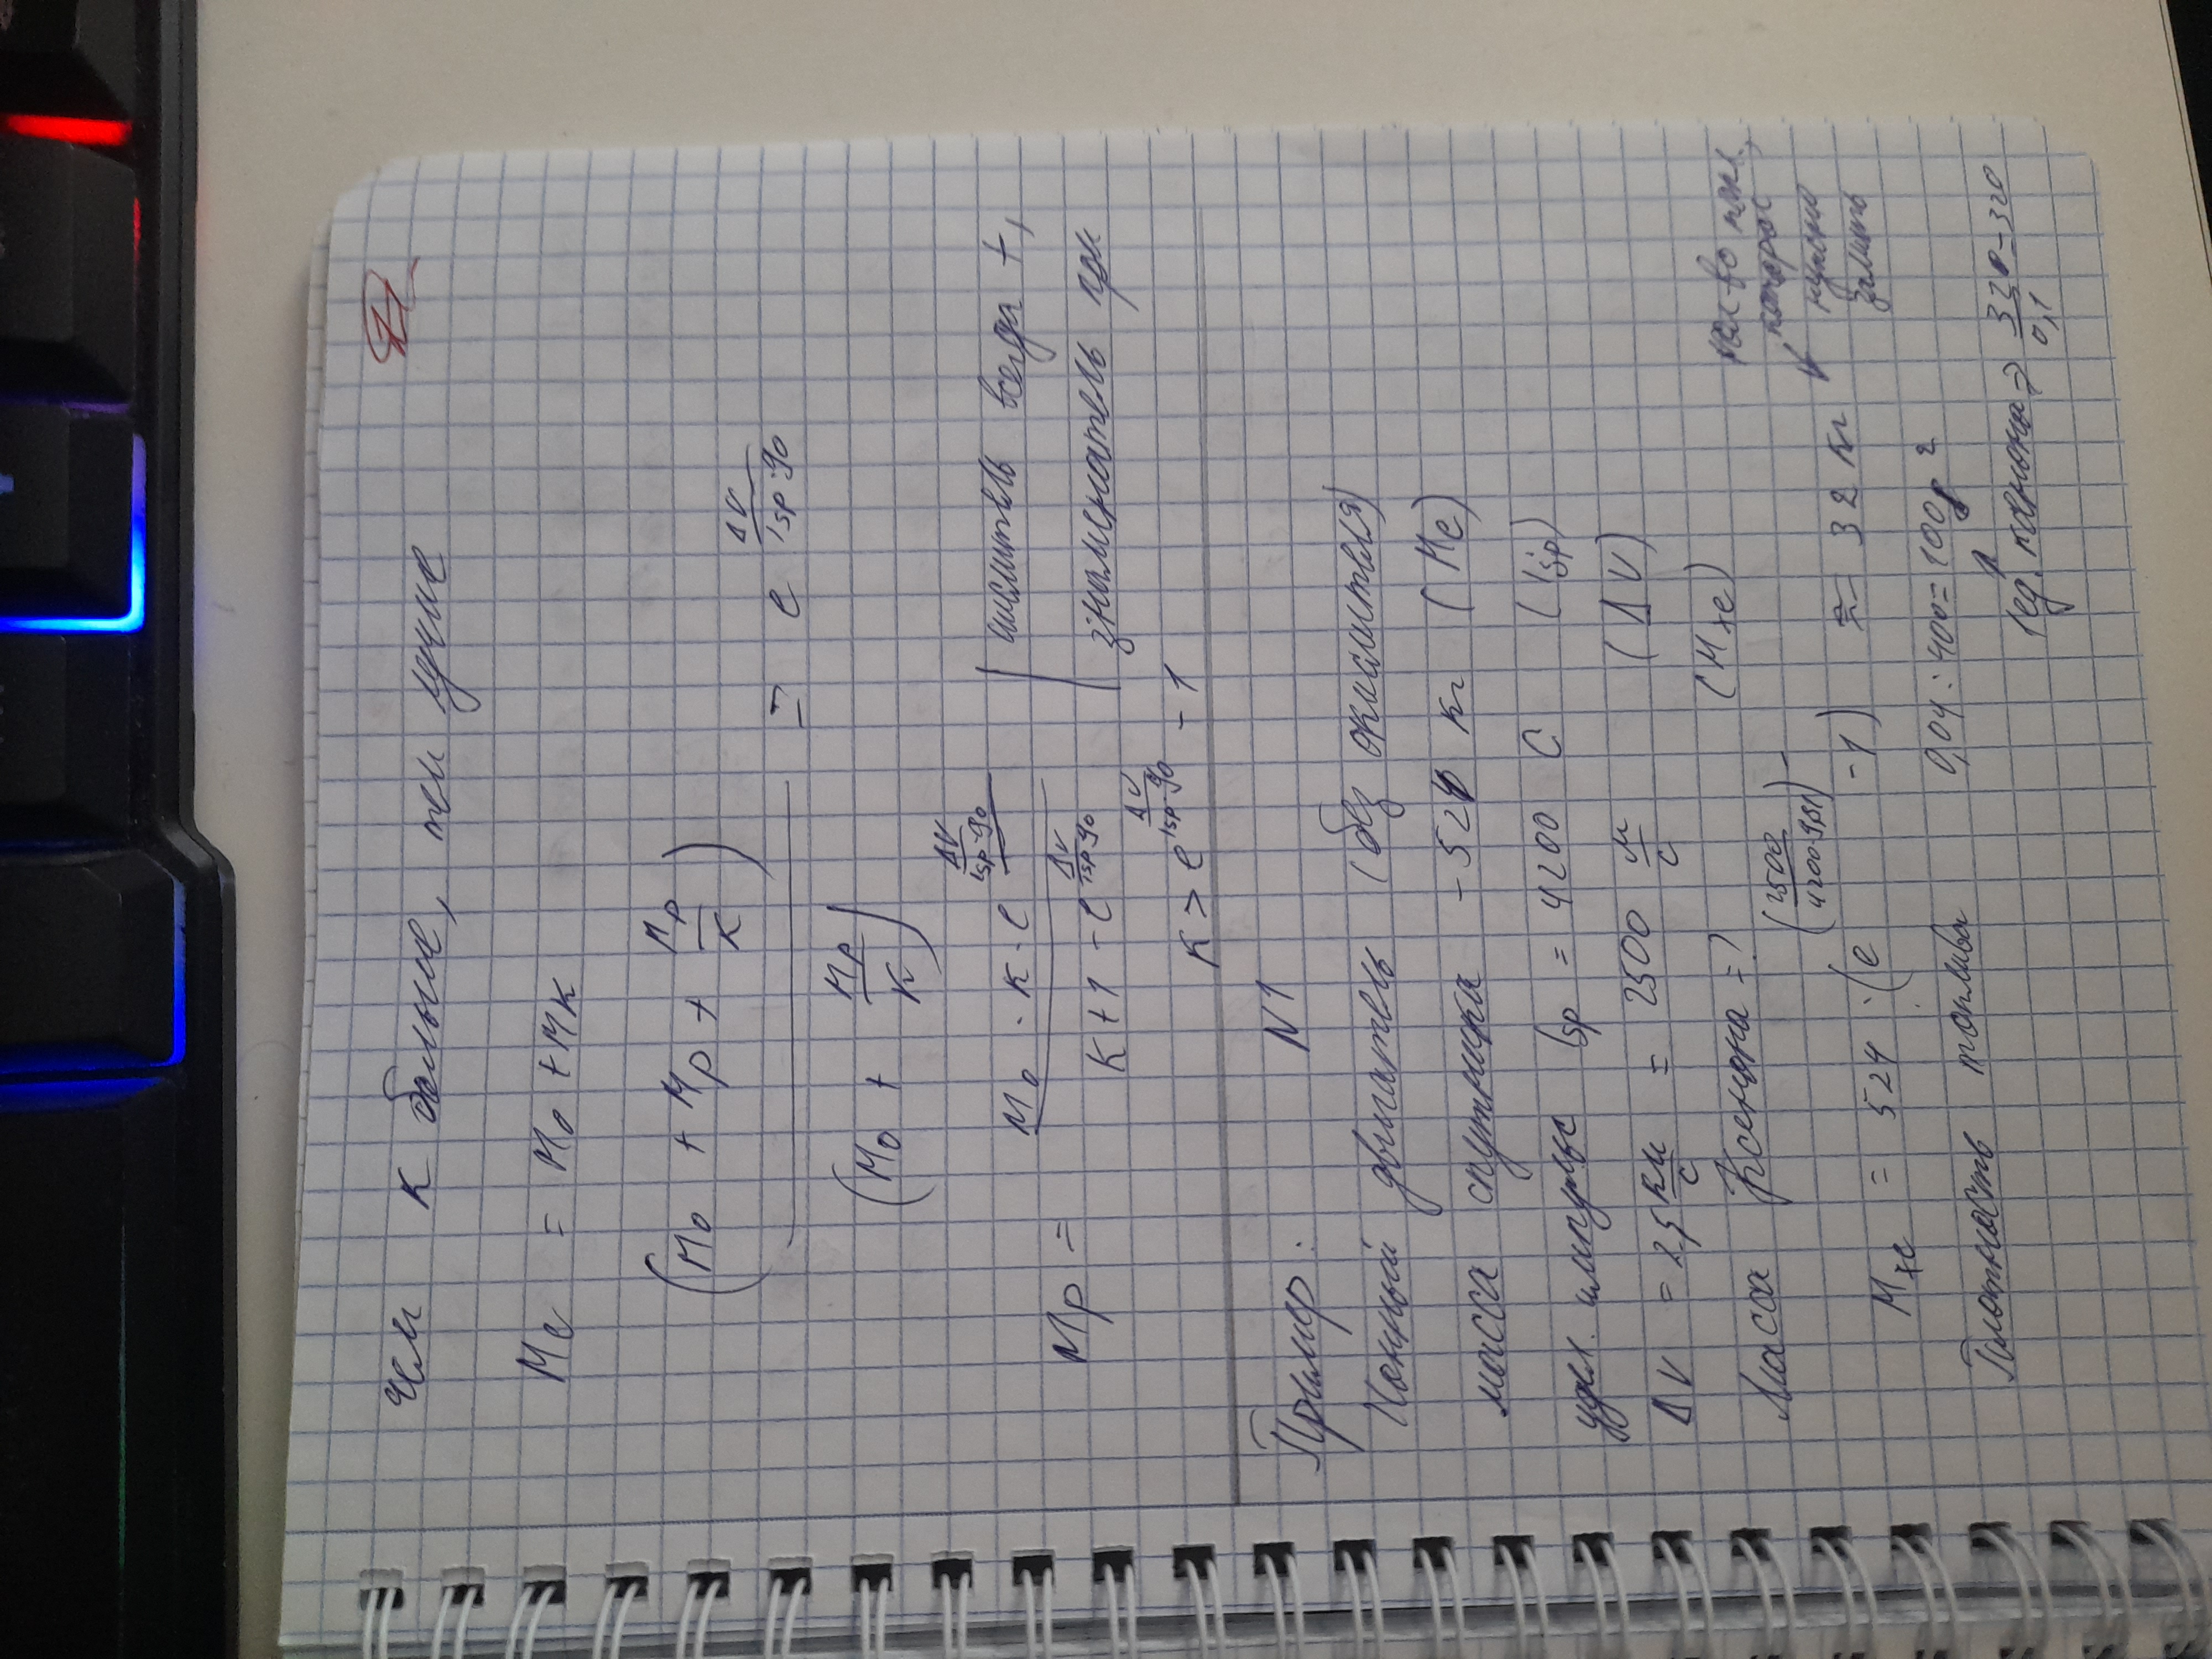 чем к больше, тем лучше
Me = Mo + Mк
(Mo + Mp + Mp/K) / (Mo + Mp/K) = e^(ΔV/(Isp·go))
Mp = (Mo · K · e^(ΔV/(Isp·go))) / (K+1 - e^(ΔV/(Isp·go))) | числитель всегда +,
знаменатель при
K > e^(ΔV/(Isp·go)) - 1
Пример: N1
Ионный двигатель (без окислителя)
масса спутника - 524 кг (Me)
удел. импульс Isp = 4200 С (Isp)
ΔV = 2,5 км/с = 2500 м/с (ΔV)
Масса Ксенона = ? (Mxe)
Mxe = 524 · (e^(2500/(4200·9,81)) - 1) ≈ 32 кг
кол-во топл.,
которое
нужно
залить
Плотность топлива 0,04 : 400 = 100 г
1 ед. ксенона => 32/0,1 = 320